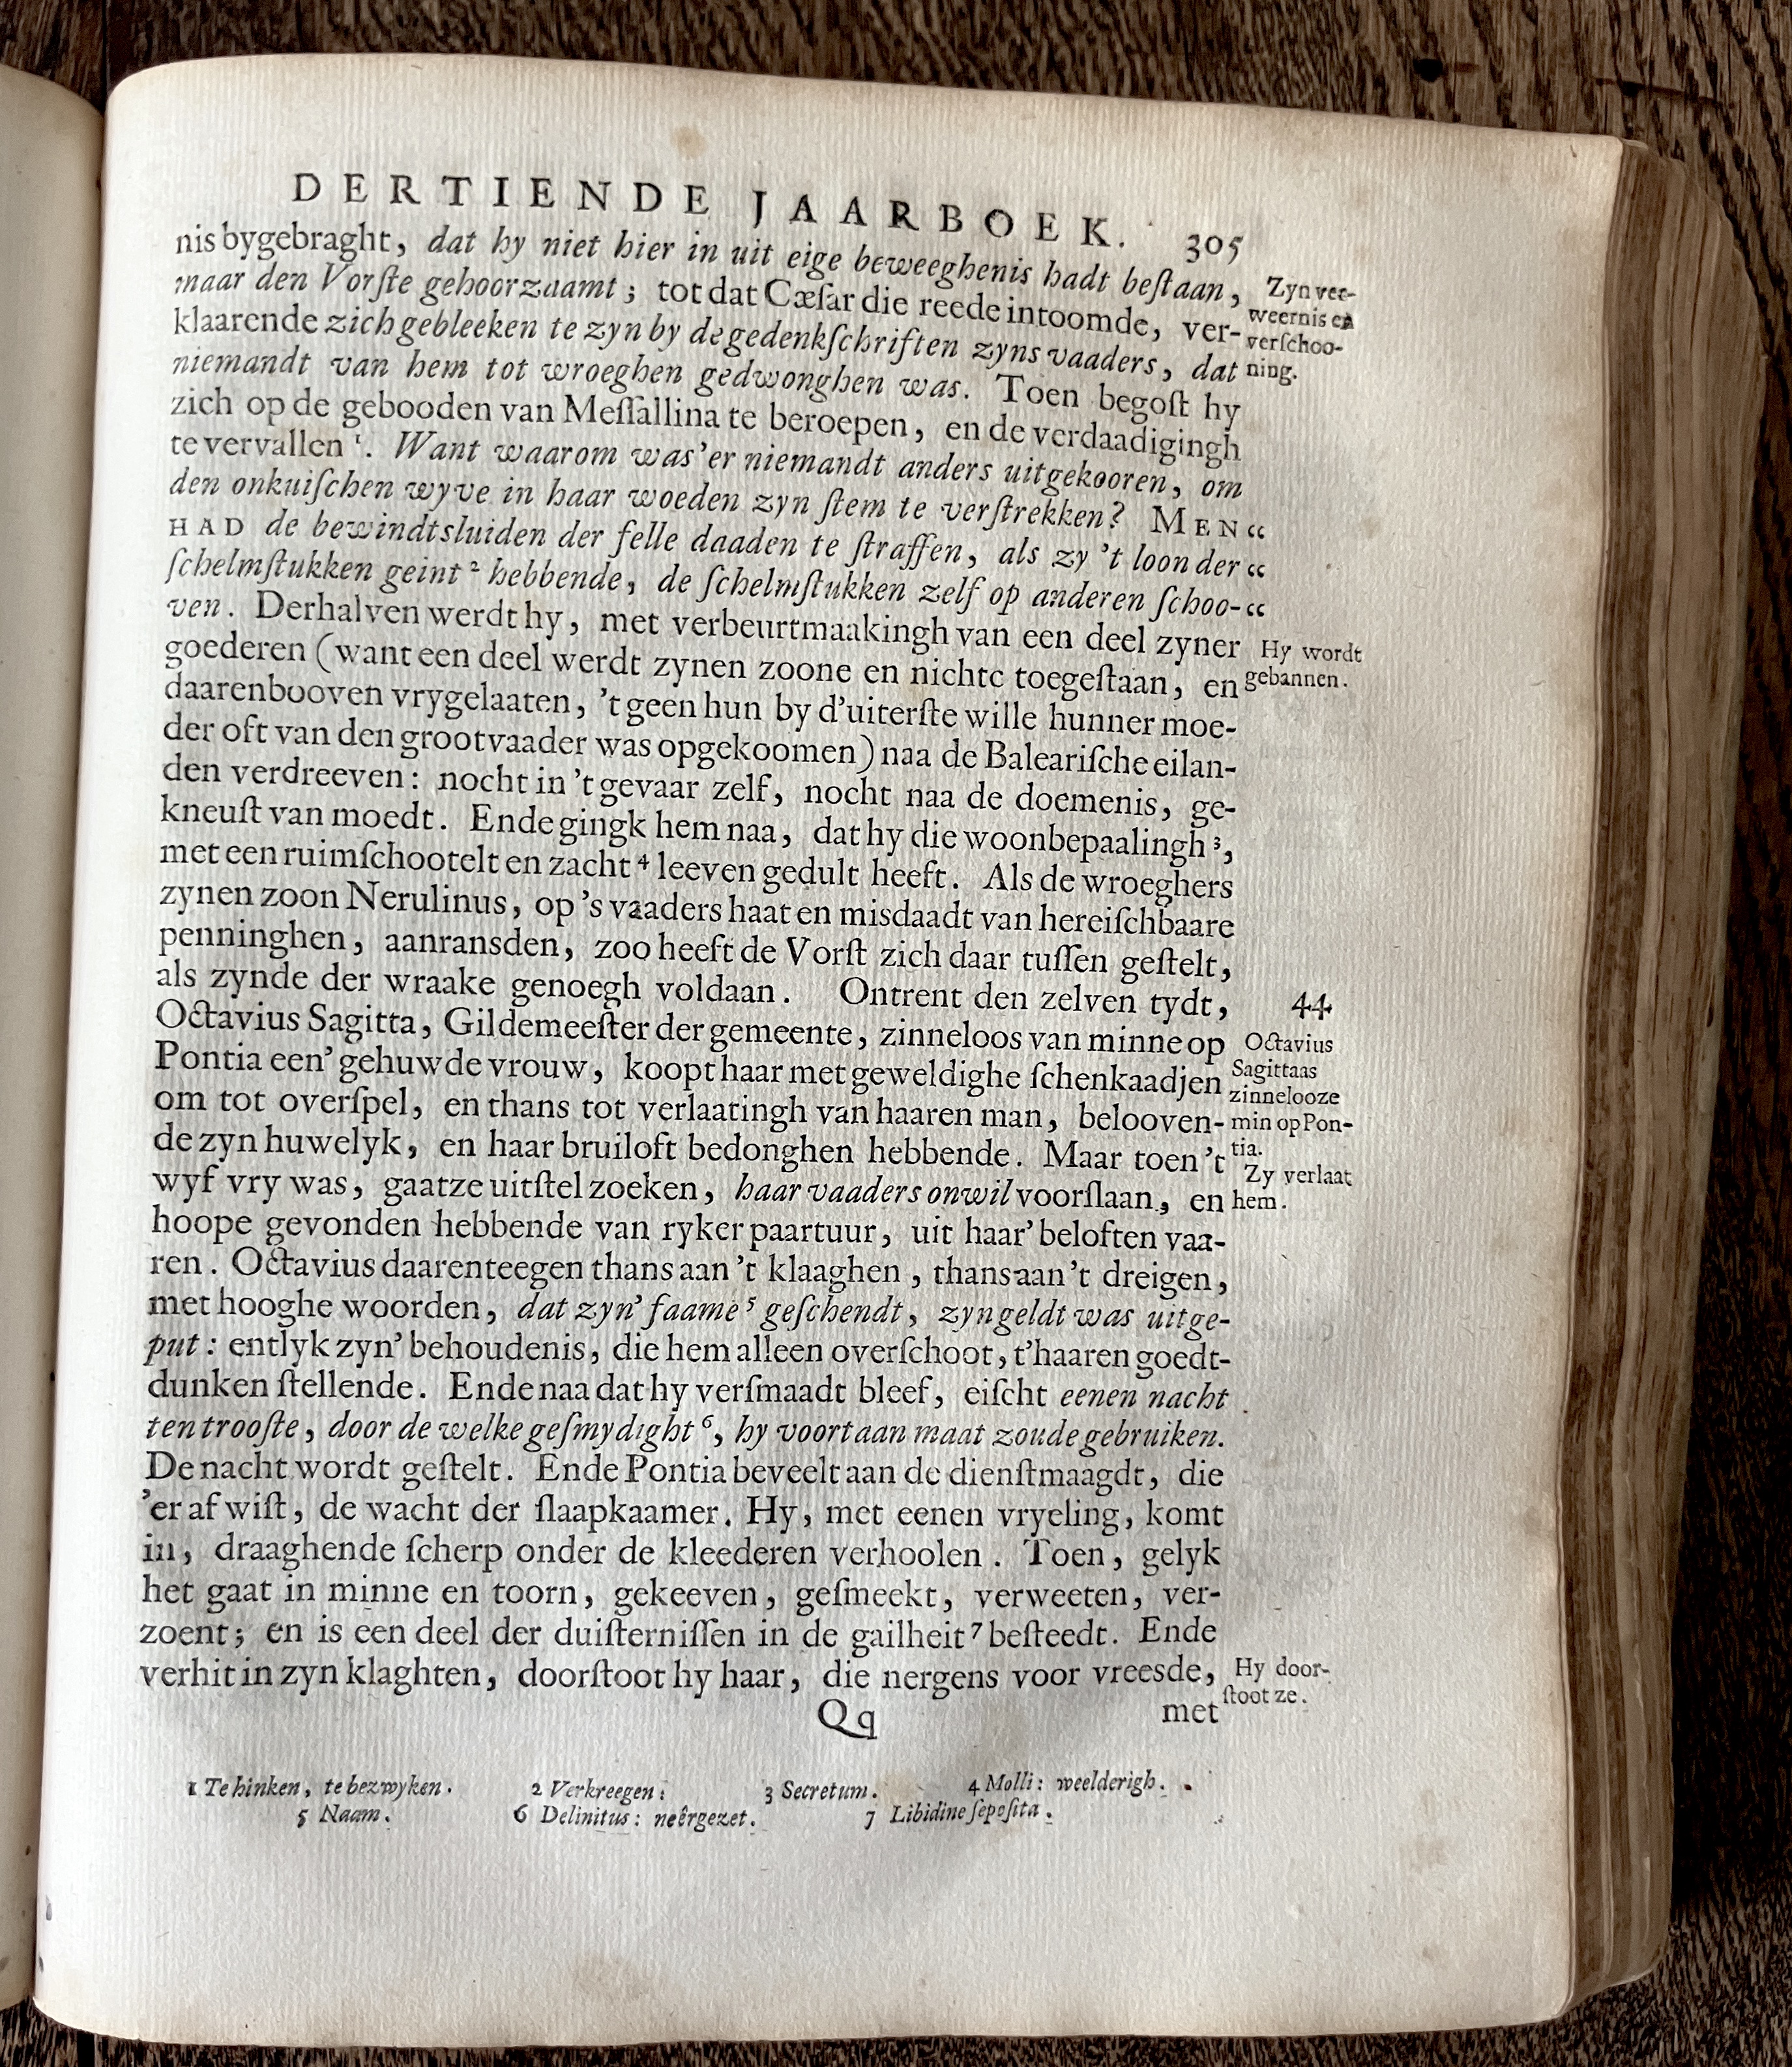 DERTIENDE JAARBOEK. 305
nis bygebraght, dat hy niet hier in uit eige beweeghenis hadt beſtaan,
maar den Vorſte gehoorzaamt; tot dat Cæſar die reede intoomde, ver-
klaarende zich gebleeken te zyn by de gedenkſchriften zyns vaaders, dat
niemandt van hem tot wroeghen gedwonghen was. Toen begoſt hy
zich op de gebooden van Meſſallina te beroepen, en de verdaadigingh
te vervallen ¹. Want waarom was'er niemandt anders uitgekooren, om
den onkuiſchen wyve in haar woeden zyn ſtem te verſtrekken? MEN “
HAD de bewindtsluiden der felle daaden te ſtraffen, als zy 't loon der “
ſchelmſtukken geint ² hebbende, de ſchelmſtukken zelf op anderen ſchoo- “
ven. Derhalven werdt hy, met verbeurtmaakingh van een deel zyner
goederen (want een deel werdt zynen zoone en nichte toegeſtaan, en
daarenbooven vrygelaaten, 't geen hun by d'uiterſte wille hunner moe-
der oft van den grootvaader was opgekoomen) naa de Baleariſche eilan-
den verdreeven: nocht in 't gevaar zelf, nocht naa de doemenis, ge-
kneuſt van moedt. Ende gingk hem naa, dat hy die woonbepaalingh ³,
met een ruimſchootelt en zacht ⁴ leeven gedult heeft. Als de wroeghers
zynen zoon Nerulinus, op 's vaaders haat en misdaadt van hereiſchbaare
penninghen, aanransden, zoo heeft de Vorſt zich daar tuſſen geſtelt,
als zynde der wraake genoegh voldaan. Ontrent den zelven tydt,
Octavius Sagitta, Gildemeeſter der gemeente, zinneloos van minne op
Pontia een' gehuwde vrouw, koopt haar met geweldighe ſchenkaadjen
om tot overſpel, en thans tot verlaatingh van haaren man, belooven-
de zyn huwelyk, en haar bruiloft bedonghen hebbende. Maar toen 't
wyf vry was, gaatze uitſtel zoeken, haar vaaders onwil voorſlaan, en
hoope gevonden hebbende van ryker paartuur, uit haar' beloften vaa-
ren. Octavius daarenteegen thans aan 't klaaghen, thans aan 't dreigen,
met hooghe woorden, dat zyn' faame ⁵ geſchendt, zyn geldt was uitge-
put: entlyk zyn' behoudenis, die hem alleen overſchoot, t'haaren goedt-
dunken ſtellende. Ende naa dat hy verſmaadt bleef, eiſcht eenen nacht
ten trooſte, door de welke geſmydight ⁶, hy voortaan maat zoude gebruiken.
De nacht wordt geſtelt. Ende Pontia beveelt aan de dienſtmaagdt, die
'er af wiſt, de wacht der ſlaapkaamer. Hy, met eenen vryeling, komt
in, draaghende ſcherp onder de kleederen verhoolen. Toen, gelyk
het gaat in minne en toorn, gekeeven, geſmeekt, verweeten, ver-
zoent; en is een deel der duiſterniſſen in de gailheit ⁷ beſteedt. Ende
verhit in zyn klaghten, doorſtoot hy haar, die nergens voor vreesde,
Qq met
Zyn vee-
weernis en
verſchoo-
ning.
Hy wordt
gebannen.
44
Octavius
Sagittaas
zinnelooze
min op Pon-
tia.
Zy verlaat
hem.
Hy door-
ſtoot ze.
1 Te hinken, te bezwyken. 2 Verkreegen: 3 Secretum. 4 Molli: weelderigh.
5 Naam. 6 Delinitus: neêrgezet. 7 Libidine ſepoſita.